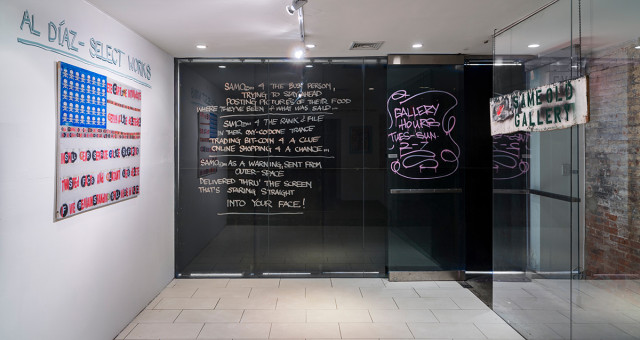 AL DÍAZ - SELECT WORKS
SAMO© 4 THE BUSY PERSON,
TRYING TO STAY AHEAD
POSTING PICTURES OF THEIR FOOD
WHERE THEY'VE BEEN + WHAT WAS SAID...
SAMO© 4 THE RANK & FILE
IN THEIR OXY-CODONE TRANCE
TRADING BIT-COIN 4 A CLUE
ONLINE SHOPPING 4 A CHANCE...
SAMO© AS A WARNING, SENT FROM
OUTER-SPACE
DELIVERED THRU' THE SCREEN
THAT'S STARING STRAIGHT
INTO YOUR FACE!
GALLERY
HOURS
TUES-SUN
2-7
SAME OLD
GALLERY